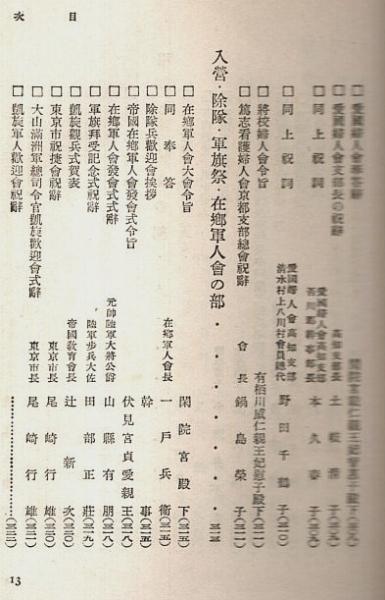 目次
□愛國婦人會奉答辭 閑院宮載仁親王妃智惠子殿下(三〇九)
□愛國婦人會支部長の祝辭 高知支部長 土 殿(三〇九)
□同上祝詞 愛國婦人會高知支部 吾川郡幹事部長 土本久春子(三〇九)
□同上祝詞 愛國婦人會高知支部 淸水村上八川村會員總代 野田千鶴子(三一〇)
□將校婦人會令旨 有栖川威仁親王妃慰子殿下(三一一)
□篤志看護婦人會京都支部總會祝辭 會長 鍋島榮子(三一一)
入營・除隊・軍旗祭・在鄕軍人會の部・・・・三一三
□在鄕軍人會大會令旨 閑院宮殿下(三一五)
□同奉答 在鄕軍人會長 一戶兵衞(三一五)
□除隊兵歡迎會挨拶 幹事(三一五)
□帝國在鄕軍人會發會式令旨 伏見宮貞愛親王(三一八)
□在鄕軍人會發會式式辭 元帥陸軍大將公爵 山縣有朋(三一八)
□軍旗拜受記念式祝辭 陸軍步兵大佐 田部正莊(三一九)
□凱旋觀兵式賀表 帝國敎育會長 辻新次(三二〇)
□東京市祝捷會祝辭 東京市長 尾崎行雄(三二一)
□大山滿洲軍總司令官凱旋歡迎會式辭 東京市長 尾崎行雄(三二一)
□凱旋軍人歡迎會祝辭………(三二二)
13